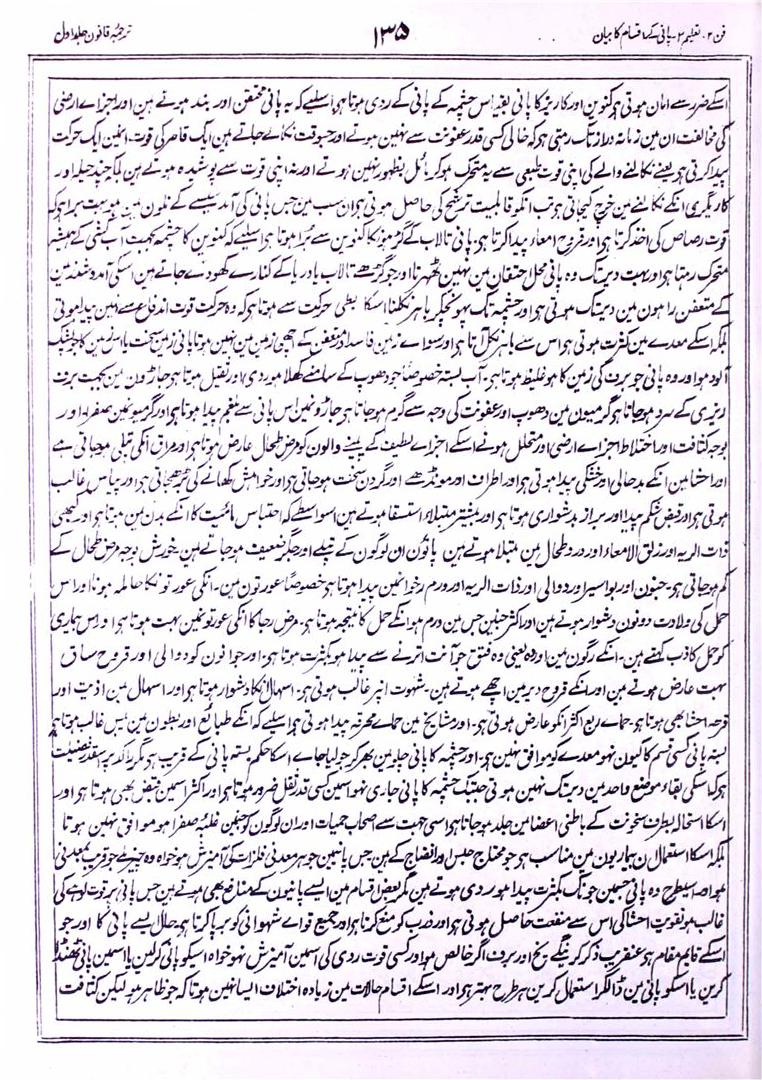 فن ۲۔ تعلیم ۲۔ پانی کے اقسام کا بیان
۱۳۵
ترجمۂ قانون جلد اول
اسکے ضرر سے امان ہوتی ہو کنوین اور کاریز کا پانی بقیاس چشمہ کے پانی کے ردی ہوتا ہو اسلیے کہ یہ پانی محتقن اور بند ہوتے ہین اور اجزاے ارضی
کی مخالطت ان مین زمانہ دراز تک رہتی ہو کہ خالی کسی قدر عفونت سے نہین ہوتے اور جسوقت نکالے جاتے ہین ایک قاصر کی قوت انمین ایک حرکت
پیدا کرتی ہو یعنے نکالنے والے کی اپنی قوت طبیعی سے یہ متحرک ہو کر مائل بظہور نہین ہوتے اور نہ اپنی قوت سے پوشیدہ ہوتے ہین بلکہ چند حیلہ اور
کاریگری انکے نکالنے مین خرچ کیجاتی ہو تب انکو قابلیت ترشح کی حاصل ہوتی ہو ان سب مین جس پانی کی آمد سیسے کے نلون مین ہو بہت برا ہو کہ
قوت رصاص کی اخذ کرتا ہو اور قروح امعا پیدا کرتا ہو۔ پانی تالاب کے گڑھو کا کنوین سے برا ہوتا ہو اسلیے کہ کنوین کا چشمہ بجہت آب کشی کے ہمیشہ
متحرک رہتا ہو اور بہت دیر تک وہ پانی محل حقان مین نہین ٹھہرتا اور جو گڑھے تالاب یا دریا کے کنارے کھودے جاتے ہین اسکی آمد و شد زمین
کے متعفن راہون مین دیر تک ہوتی ہو اور چشمہ تک پہونچکر باہر نکلنا اسکا بطی حرکت سے ہوتا ہو کہ وہ حرکت قوت اندفاع سے نہین پیدا ہوتی
بلکہ اسکے معدے مین کثرت ہوتی ہو اس سے باہر نکل آتا ہو اور سواے زمین فاسد اور متعفن کے اچھی زمین مین نہین ہوتا پانی زمین سخت یا اس زمین کا جو نمک
آلود ہو اور وہ پانی جو برف کی زمین کا ہو غلیظ ہوتا ہو۔ آب بستہ خصوصاً جو دھوپ کے سامنے کھلا ہو ردی اور ثقیل ہوتا ہو جاڑون مین بجہت برف
ریزی کے سرد ہو جاتا ہو گرمیون مین دھوپ اور عفونت کی وجہ سے گرم ہو جاتا ہو جاڑونمین اس پانی سے بلغم پیدا ہوتا ہو اور گرمیونمین صفرا اور
بوجہ کثافت اور اختلاط اجزاے ارضی اور متحلل ہونے اسکے اجزاے لطیف کے پینے والون کو مرض طحال عارض ہوتا ہو اور مراق انکی پتلی ہو جاتی ہے
اور احشا مین انکے بدحالی اور خشکی پیدا ہوتی ہو اور اطراف اور مونڈھے اور گردن سخت ہو جاتی ہو اور خواہش کھانے کی بڑھجاتی ہو اور پیاس غالب
ہوتی ہو اور قبض شکم پیدا اور براز بدشواری ہوتا ہو اور بیشتر مبتلاے استسقا ہوتے ہین اسواسطے کہ احتباس مائیت کا انکے بدن مین ہوتا ہو اور کبھی
ذات الریہ اور زلق الامعاء اور درد طحال مین مبتلا ہوتے ہین پانون ان لوگون کے پتلے اور جگر ضعیف ہو جاتے ہین خورش بوجہ مرض طحال کے
کم ہو جاتی ہو۔ جنون اور بواسیر اور دوالی اور ذات الریہ اور ورم رخو انمین پیدا ہوتا ہو خصوصاً عورتون مین۔ انکی عورتونکا حاملہ ہونا اور اس
حمل کی ولادت دونون دشوار ہوتے ہین اور اکثر جنین جس مین ورم ہو انکے حمل کا نتیجہ ہوتا ہو۔ مرض رجا کا انکی عورتونمین بہت ہوتا ہو اور اس بیماری
کو حمل کاذب کہتے ہین۔ انکے رگون مین ادرہ یعنی وہ فتق جو آنت اترنے سے پیدا ہو بکثرت ہوتا ہو۔ اور جوانون کو دوالی اور قروح ساق
بہت عارض ہوتے ہین اور انکے قروح دیر مین اچھے ہوتے ہین۔ شہوت انپر غالب ہوتی ہو۔ اسہال انکا دشوار ہوتا ہو اور اسہال مین اذیت اور
قرحہ احشا بھی ہوتا ہو۔ حماے ربع اکثر انکو عارض ہوتی ہو۔ اور مشایخ مین حماے محرقہ پیدا ہوتی ہو اسلیے کہ انکے طبائع اور بطون مین یبس غالب ہوتا ہو
بستہ پانی کسی قسم کا کیون نہو معدے کو موافق نہین ہو۔ اور چشمہ کا پانی چلو مین بھر کر جو لیا جاے اسکا حکم بستہ پانی کے قریب ہو مگر راکد پر اسقدر فضیلت
ہو کہ اسکی بقاء موضع واحد مین دیر تک نہین ہوتی جبتک چشمہ کا پانی جاری نہو اسمین کسی قدر ثقل ضرور ہوتا ہو اور اکثر اسمین قبض بھی ہوتا ہو اور
اسکا استحالہ بطرف سخونت کے باطنی اعضا مین جلد ہو جاتا ہو اسی جہت سے اصحاب حمیات اور ان لوگون کو جنمین غلبۂ صفرا ہو موافق نہین ہوتا
بلکہ اسکا استعمال ان بیماریون مین مناسب ہو جو محتاج حبس اور انضاج کے ہین جن پانیین جوہر معدنی فلزات کی آمیزش ہو خواہ وہ چیز جو قریب معدنی
ہو اور اسیطرح وہ پانی جسمین جونک بکثرت پیدا ہو ردی ہوتے ہین مگر بعض اقسام مین ایسے پانیون کے منافع بھی ہوتے ہین جس پانی پر قوت لوہے کی
غالب ہو تقویت احشا کی اس سے منفعت حاصل ہوتی ہو اور ذرب کو منع کرتا ہو اور جمیع قواے شہوانی کو برپا کرتا ہو۔ حال ایسے پانی کا اور جو
اسکے قایم مقام ہو عنقریب ذکر کرینگے یخ اور برف اگر خالص ہو اور کسی قوت ردی کی اسمین آمیزش نہو خواہ اسیکو پانی کر لین یا اسمین پانی ٹھنڈا
کرین یا اسکو پانی مین ڈالکر استعمال کرین ہر طرح بہتر ہو اور اسکے اقسام حالات مین زیادہ اختلاف ایسا نہین ہوتا کہ جو ظاہر ہو لیکن کثافت